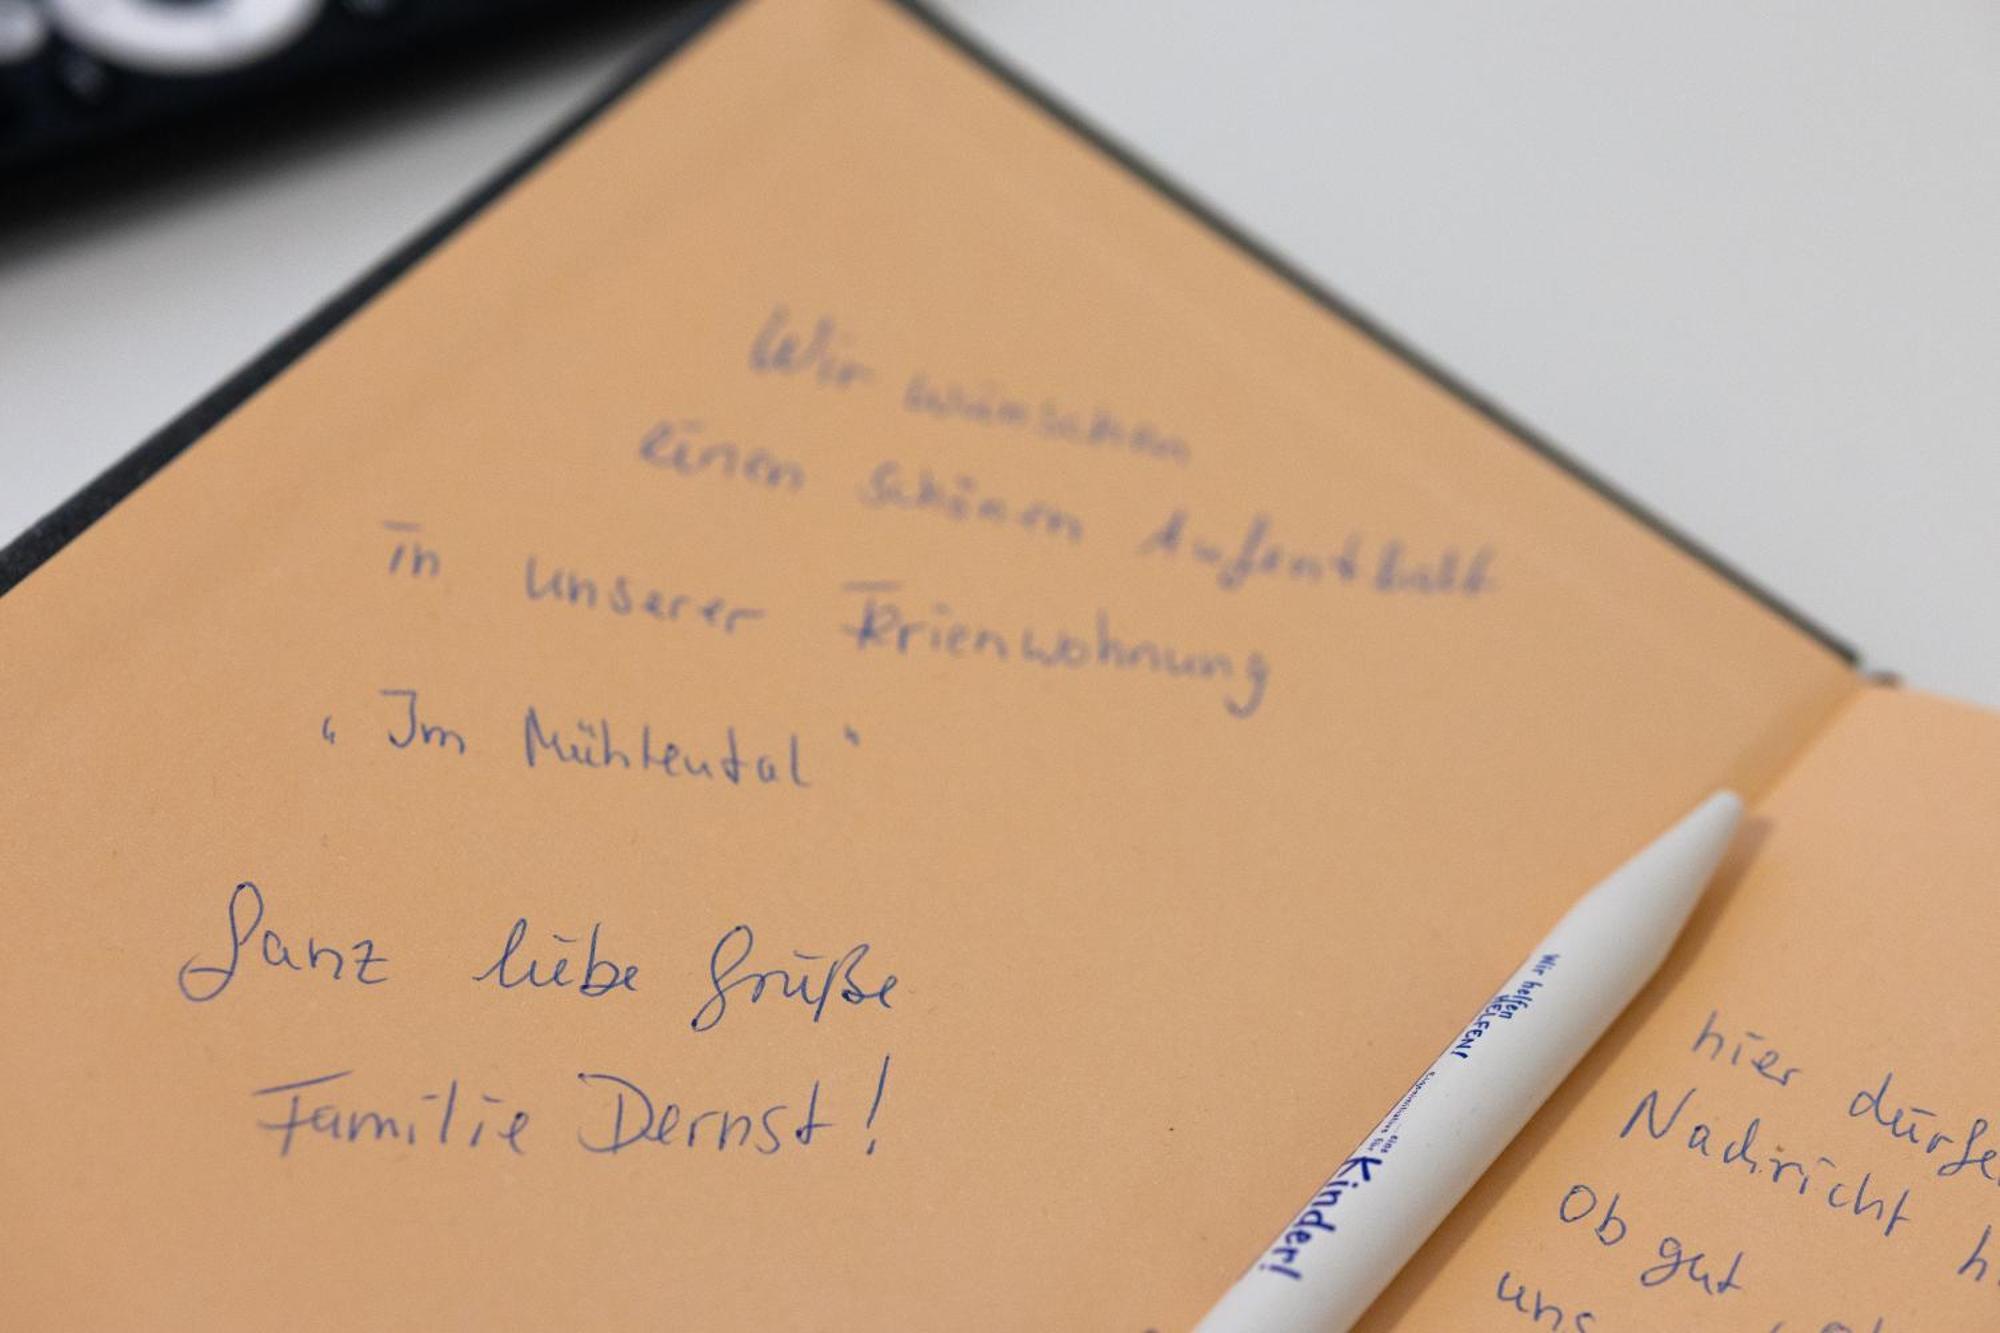 Wir wünschen
einen schönen Aufenthalt
in unserer Ferienwohnung
"Im Mühlental"
Ganz liebe Grüße
Familie Dernst!
Wir helfen
HELFEN!
...eine
Kinder!
hier dürfe
Nachricht h
Ob gut
uns